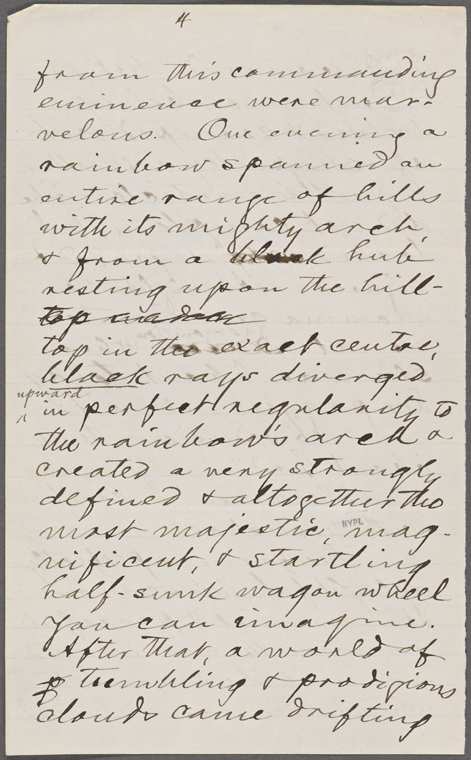 4
from this commanding
eminence were mar-
velous. One evening a
rainbow spanned an
entire range of hills
with its mighty arch
& from a black hub
resting upon the hill-
top in the exact centre,
black rays diverged
upward
in perfect regularity to
the rainbow's arch &
created a very strongly
defined & altogether the
most majestic, mag-
NYPL
nificent, & startling
half-sunk wagon wheel
you can imagine.
After that, a world of
tumbling & prodigious
clouds came drifting